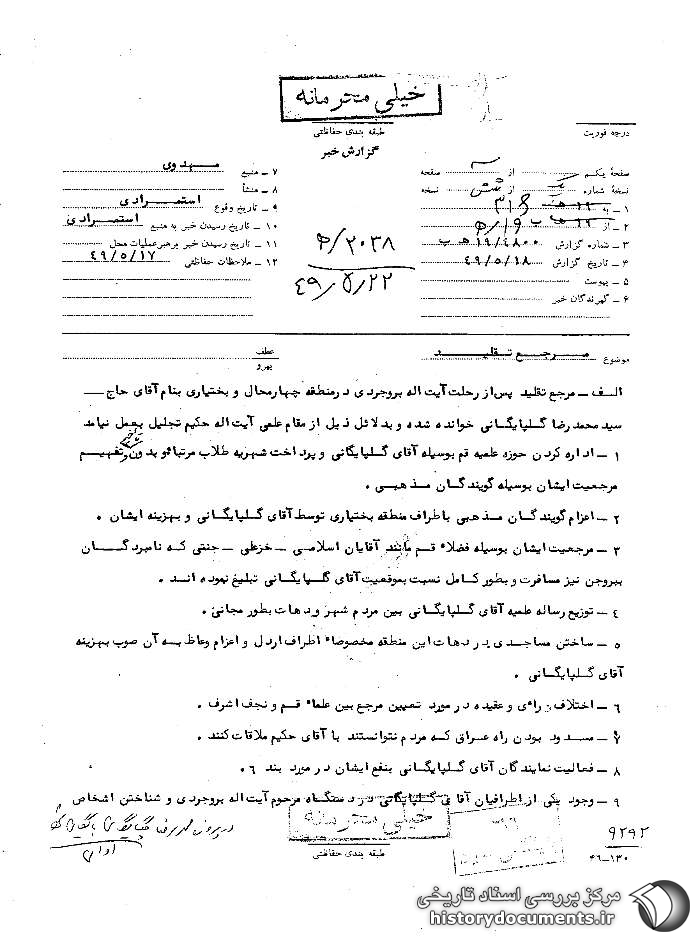 خیلی محرمانه
طبقه بندی حفاظتی
گزارش خبر
درجه فوریت
صفحهٔ یکم از ۳ صفحه
نسخهٔ شماره از شش نسخه
۱ ـ به ۳۱۶
۲ ـ از ۱۹/ﻫ
۳ ـ شماره گزارش ۱۹/۴۸۰۰ ﻫ ب
۴ ـ تاریخ گزارش ۴۹/۵/۱۸
۵ ـ پیوست
۶ ـ گیرندگان خبر
۷ ـ منبع مهدوی
۸ ـ منشأ
۹ ـ تاریخ وقوع استمراری
۱۰ ـ تاریخ رسیدن خبر به منبع استمراری
۱۱ ـ تاریخ رسیدن خبر برهبر عملیات محل
۱۲ ـ ملاحظات حفاظتی ۴۹/۵/۱۷
ﻫ/۲۰۳۸
۴۹/۵/۲۲
موضوع مرجع تقلید
عطف
پیرو
الف ـ مرجع تقلید پس از رحلت آیت اله بروجردی در منطقه چهارمحال و بختیاری بنام آقای حاج ــ
سید محمد رضا گلپایگانی خوانده شده و بدلائل ذیل از مقام علمی آیت اله حکیم تجلیل بعمل نیامد
۱ ـ اداره کردن حوزه علمیه قم بوسیله آقای گلپایگانی و پرداخت شهریه طلاب مرتبا و بدون تاخیر و تفهیم
مرجعیت ایشان بوسیله گویندگان مذهبی .
۲ ـ اعزام گویندگان مذهبی باطراف منطقه بختیاری توسط آقای گلپایگانی و بهزینه ایشان .
۳ ـ مرجعیت ایشان بوسیله فضلاء قم مانند آقایان اسلامی ـ خزعلی ـ جنتی که نامبردگان
ببروجن نیز مسافرت و بطور کامل نسبت بموقعیت آقای گلپایگانی تبلیغ نموده اند .
۴ ـ توزیع رساله علمیه آقای گلپایگانی بین مردم شهر و دهات بطور مجانی .
۵ ـ ساختن مساجدی در دهات این منطقه مخصوصا اطراف اردل و اعزام وعاظ به آن صوب بهزینه
آقای گلپایگانی .
۶ ـ اختلاف و رأی و عقیده در مورد تعیین مرجع بین علماء قم و نجف اشرف .
۷ ـ مسدود بودن راه عراق که مردم نتوانستند با آقای حکیم ملاقات کنند .
۸ ـ فعالیت نمایندگان آقای گلپایگانی بنفع ایشان در مورد بند ۶ .
۹ ـ وجود یکی از اطرافیان آقای گلپایگانی در دستگاه مرحوم آیت اله بروجردی و شناختن اشخاص
خیلی محرمانه
طبقه بندی حفاظتی
۹۲۹۲
۴۶ـ۱۳۰
مرکز بررسی اسناد تاریخی
historydocuments.ir